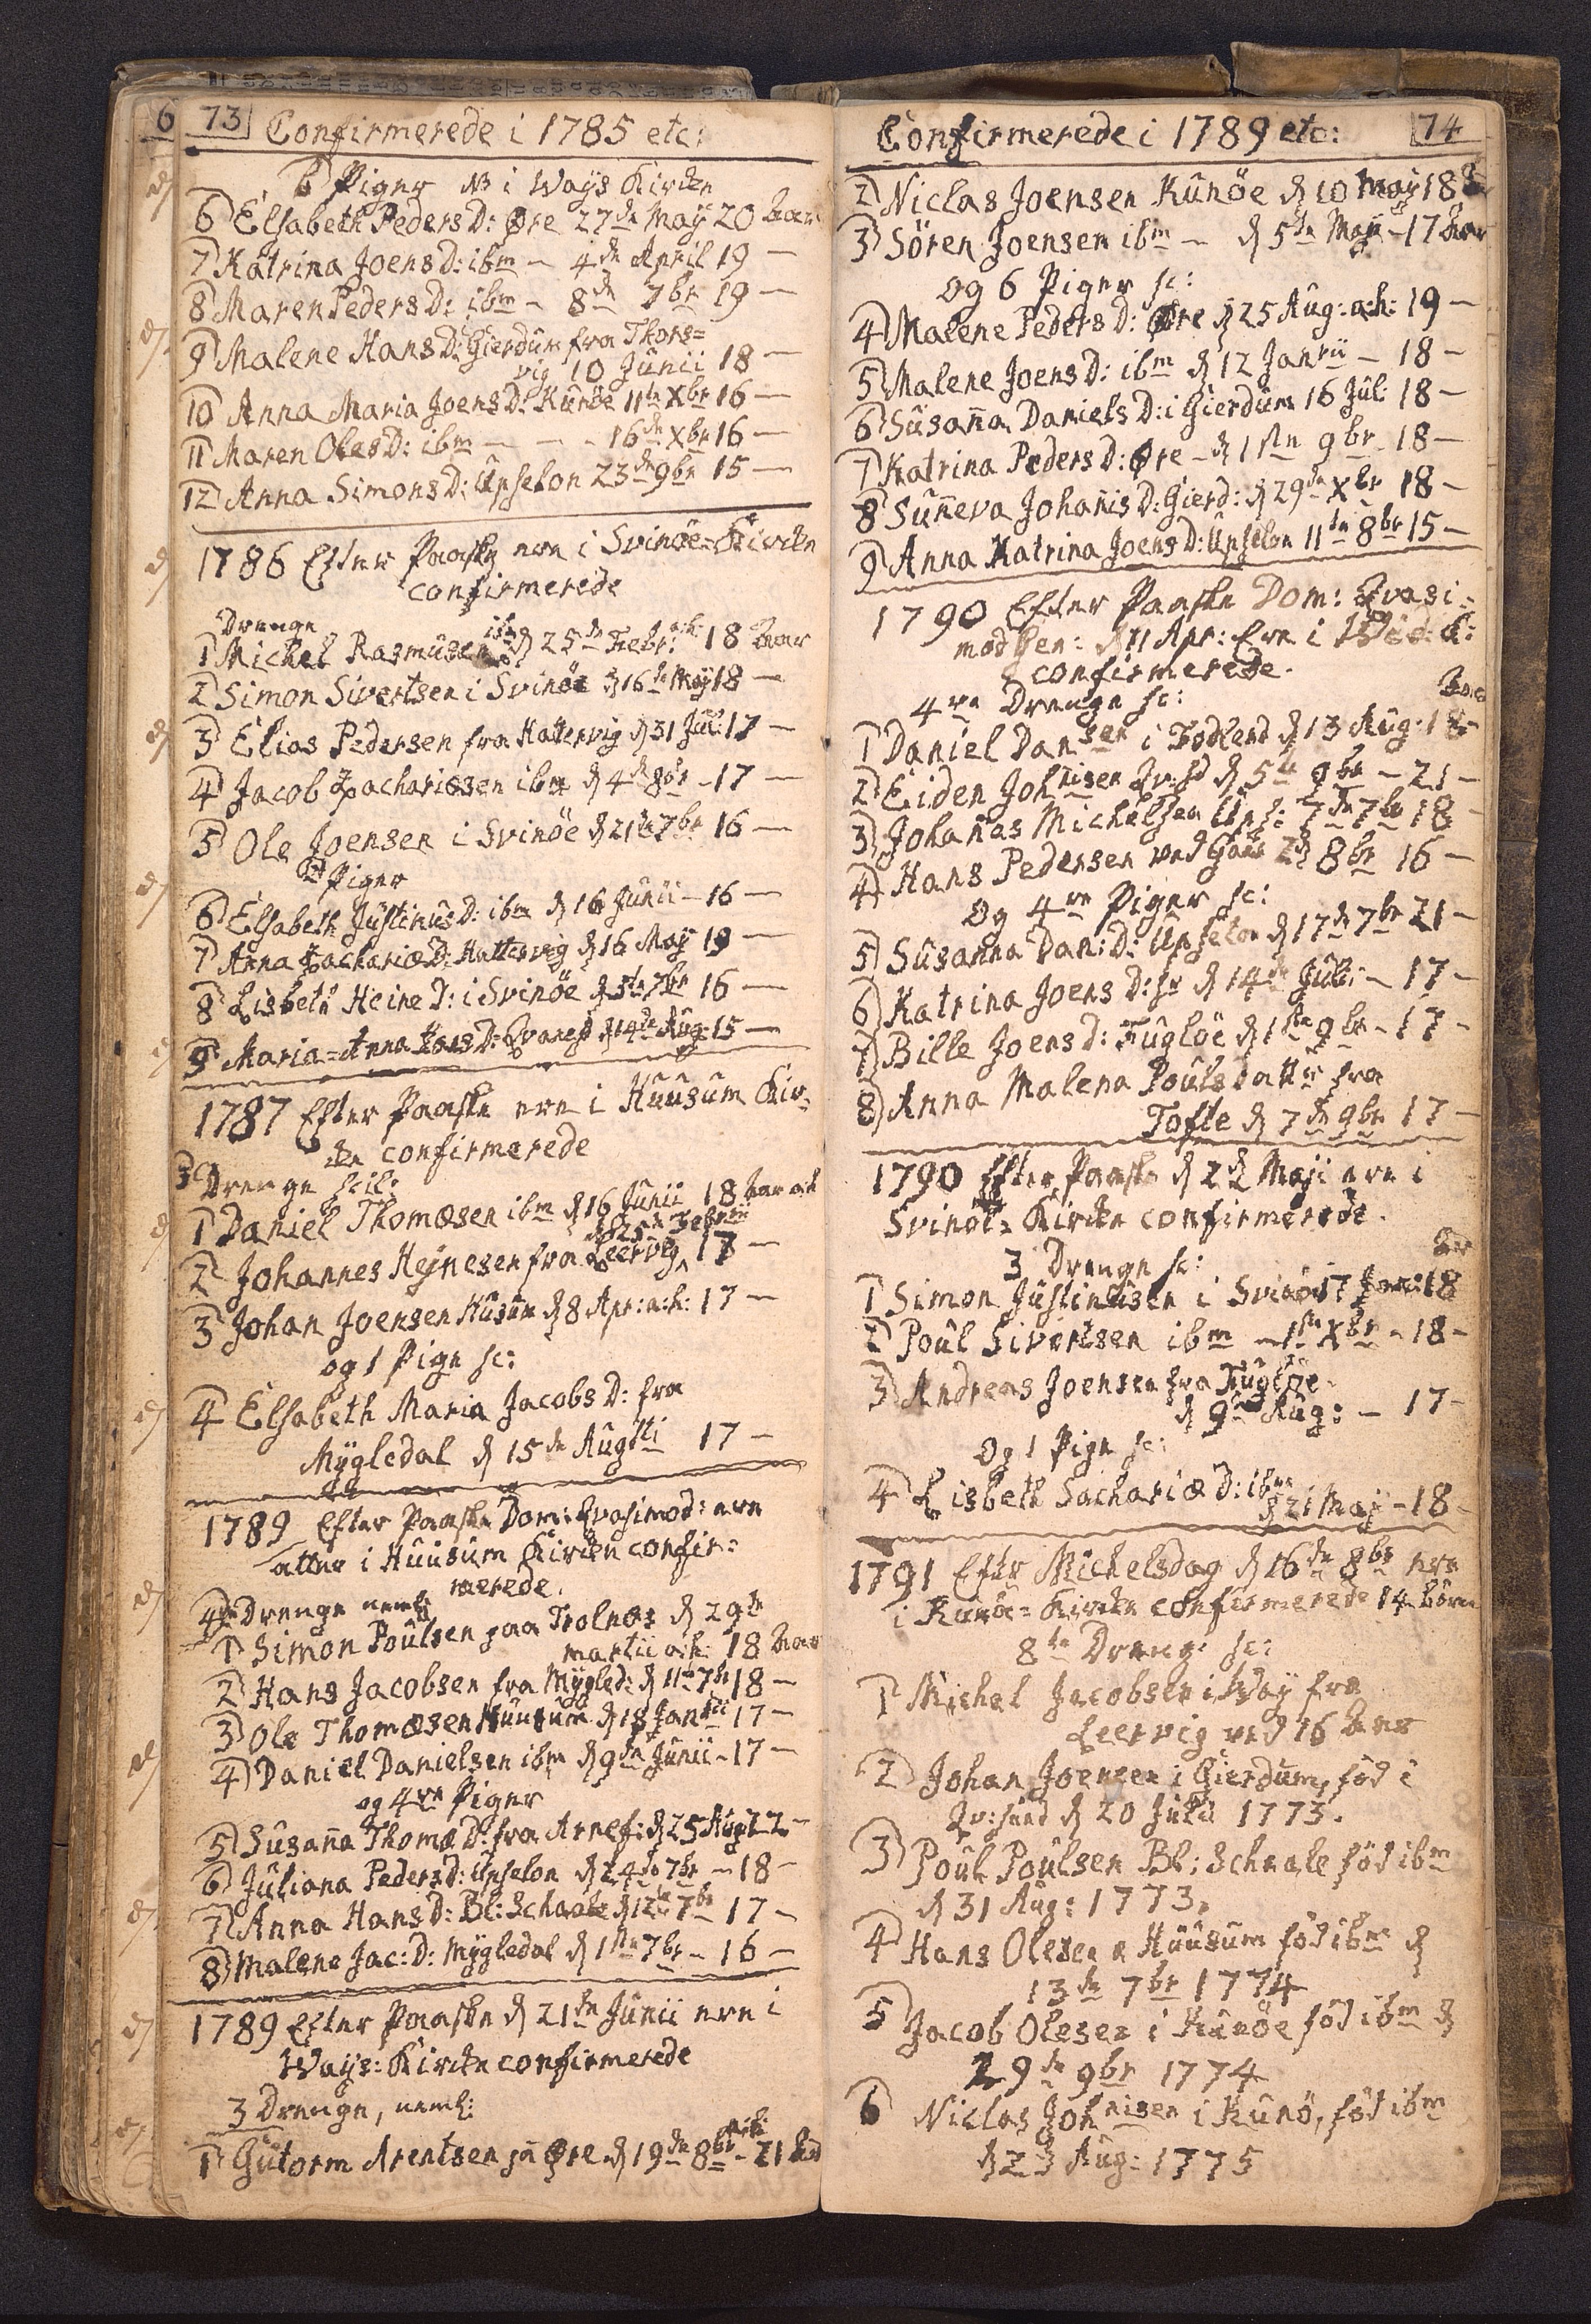 6 73 Confirmerede i 1785 etc:
6 Piger NB i Ways Kircke
6 Elsabeth Peders D: Øre 27de Maÿ 20 Aar
7 Katrina Joens D: ibm - 4de April 19 -
8 Maren Peders D: ibm - 8de 7br 19 -
9 Malene Hans D: Gierdum fra Thors=
vig 10 Junii 18 -
10 Anna Maria Joens D: Kunöe 11te Xbr 16 -
11 Maren Oles D: ibm - - - 16de Xbr 16 -
12 Anna Simons D: Upselon 23de 9br 15 -
1786 Efter Paaske ere i Svinöe=Kircke
confirmerede
Drenge
1 Michel Rasmusen ibm d 25de Febr: a:h: 18 Aar
2 Simon Sivertsen i Svinöe d 16de Maÿ 18 -
3 Elias Pedersen fra Hattervig d 31 Jul: 17 -
4 Jacob Zachariæsen ibm d 4de 8br - 17 -
5 Ole Joensen i Svinöe d 21de 7br 16 -
Piger
6 Elsabeth Justinus D: ibm d 16 Junii - 16 -
7 Anna Zachariæ D: Hattervig d 16 Maÿ 19 -
8 Lisbeth Heine D: i Svinöe d 5te 7br 16 -
9 Maria=Anna Hans D: d 14de Aug: 15 -
1787 Efter Paaske ere i Huusum Kir=
cke confirmerede
3 Drenge scil:
1 Daniel Thomæsen ibm d 16 Junii 18 Aar a:h
d 25de Februarii
2 Johannes Hejnesen fra Leervig 17 -
3 Johan Joensen Husum d 8 Apr: a:h: 17 -
og 1 Pige sc:
4 Elsabeth Maria Jacobs D: fra
Mÿgledal d 15de Augsti 17 -
1789 Efter Paaske Dom: Qvasimod: ere
atter i Huusum Kircke confir=
merede.
4re Drenge neml:
1 Simon Poulsen paa Trolnæs d 29de
martii a:h: 18 Aar
2 Hans Jacobsen fra Mÿgled: d 11te 7br 18 -
3 Ole Thomæsen Huusum d 18 Janrii 17 -
4 Daniel Danielsen ibm d 9de Junii - 17 -
og 4re Piger
5 Susaña Thomæ D: fra Arnef: d 25 Aug 22 -
6 Juliana Peders D: Upselon d 24de 7br - 18 -
7 Anna Hans D: Bl: Schaale d 12te 7br - 17 -
8 Malene Jac: D: Mÿgledal d 1ste 7br - 16 -
1789 Efter Paaske d 21de Junii ere i
Waÿs: Kircke confirmerede
3 Drenge, neml:
1 Gutorm Arentsen pa Øre d 19de 8br a:h: - 21 Aar
Confirmerede i 1789 etc: 74
2 Niclas Joensen Kunöe d 10 Maÿ 18
3 Sören Joensen ibm - d 5te Maji - 17 Aar
og 6 Piger sc:
4 Malene Peders D: Øre d 25 Aug: a:h: 19 -
5 Malene Joens D: ibm d 12 Janrii - 18 -
6 Susaña Daniels D: i Gierdum 16 Jul: 18 -
7 Katrina Peders D: Øre - d 1ste 9br - 18 -
8 Suñeva Johañis D: Gierd: d 29de Xbr 18 -
9 Anna Katrina Joens D: Upselon 11te 8br 15 -
1790 Efter Paaske Dom: Qvasi=
modgen: d 11 Apr: ere i K:
confirmerede.
4re Drenge sc: Aar
1 Daniel Dansen i d 13 Aug: 18 -
2 Eiden Johnisen d 5te 9br - 21 -
3 Johañas Michelsen Ups: 7de 7br 18 -
4 Hans Pedersen 8br 16 -
Og 4re Piger sc:
5 Susanna Dan: D: Upselon d 17de 7br 21 -
6 Katrina Joens D: d 14de Jul: - 17 -
7 Bille Joens d: Fugløe d 1ste 9br - 17 -
8 Anna Malena Poulsdatter fra
Tofte d 7de 9br 17 -
1790 Efter Paaske d 22 Maji ere i
Svinöe= Kircke confirmerede.
3 Drenge sc: Aar
1 Simon Justinusen i Svinöe 17 18
2 Poul Sivertsen ibm - 1ste Xbr - 18 -
3 Andreas Joensen fra Fuglöe
d 9de Aug: - 17 -
Og 1 Pige sc:
4 Lisbeth Sachariæ D: ibm
d 21 Maÿ - 18 -
1791 Efter Michelsdag d 16de 8br ere
i Kunöe= Kircke confirmerede 14 börn
8te Drenge sc:
1 Michel Jacobsen i Waÿ fra
Leervig ved 16 Aar
2 Johan Joensen i Gierdum, föd i
Qv:sund d 20 Julii 1773.
3 Poul Poulsen Bl: Schaale föd ibm
d 31 Aug: 1773.
4 Hans Olesen Huusum föd ibm d
13de 7br 1774
5 Jacob Olesen i Kunöe föd ibm d
29de 9br 1774
6 Niclas Johnisen i Kunö, föd ibm
d 23 Aug: 1775